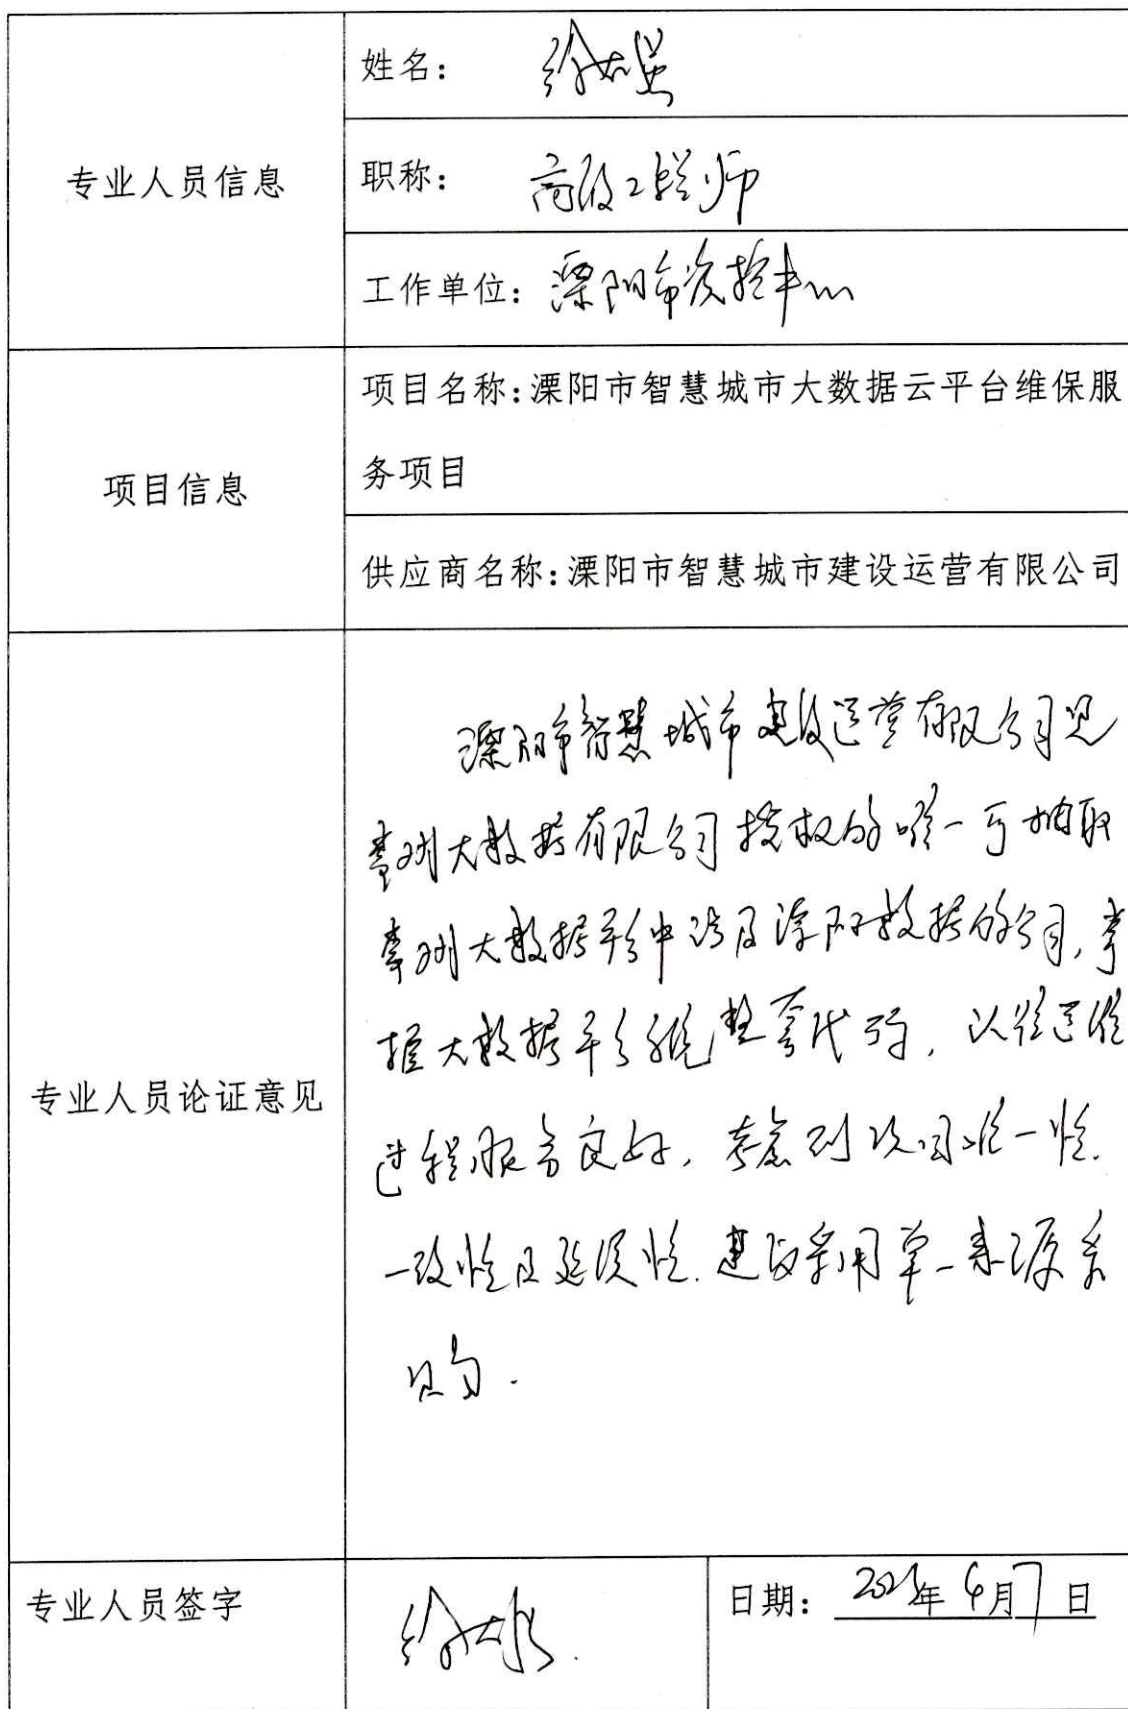 专业人员信息
姓名：徐
职称：高级工程师
工作单位：溧阳市疾控中心
项目信息
项目名称：溧阳市智慧城市大数据云平台维保服
务项目
供应商名称：溧阳市智慧城市建设运营有限公司
专业人员论证意见
溧阳市智慧城市建设运营有限公司是
大数据有限公司授权的唯一可抽取
大数据平台中涉及溧阳数据的公司，掌
握大数据平台系统整套代码，以往运维
过程服务良好，考虑到项目唯一性、
一致性及延续性，建议采用单一来源采
购．
专业人员签字
徐
日期：年6月7日